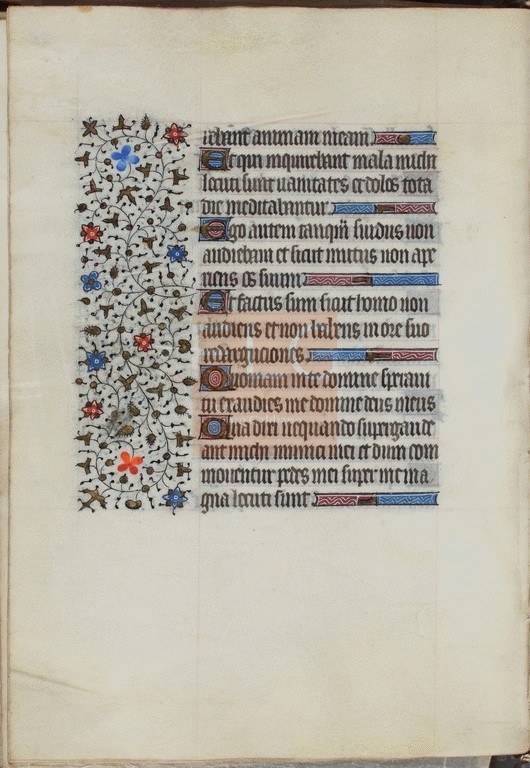 rebant animam meam
Et qui inquirebant mala michi
locuti sunt uanitates et dolos tota
die meditabantur
Ego autem tanquam surdus non
audiebam et sicut mutus non ape
riens os suum
Et factus sum sicut homo non
audiens et non habens in ore suo
redarguciones
Quoniam in te domine speraui
tu exaudies me domine deus meus
Quia dixi nequando supergaude
ant michi inimici mei et dum com
mouentur pedes mei super me ma
gna locuti sunt